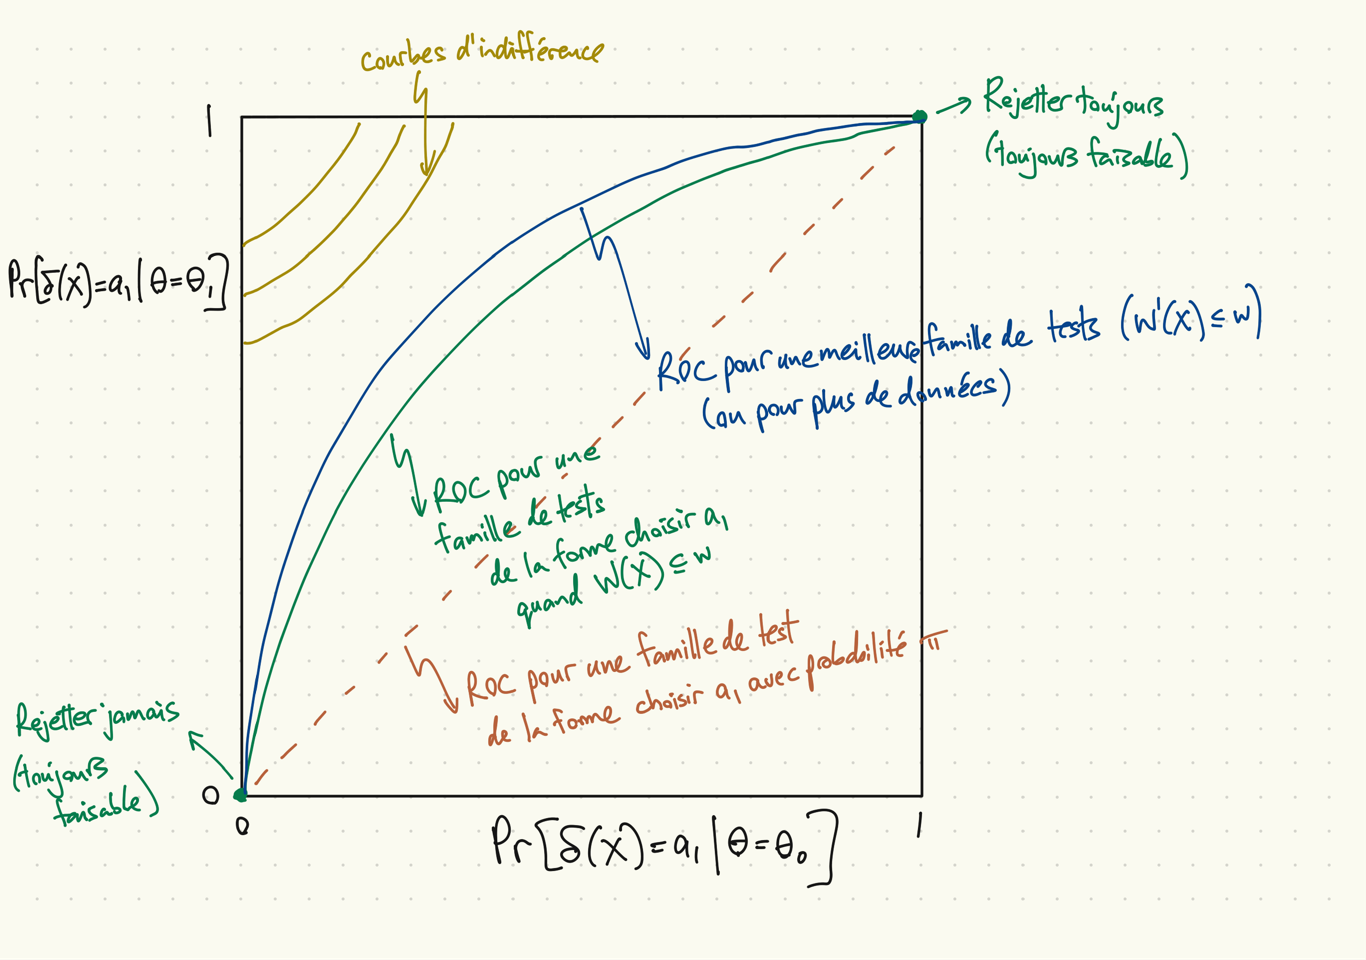 Courbes d'indifférence
1
Rejetter toujours
(toujours faisable)
Pr[δ(X)=a₁|θ=θ₁]
ROC pour une meilleure famille de tests (W'(X) ≤ w)
(ou pour plus de données)
ROC pour une
famille de tests
de la forme choisir a₁
quand W(X) ≤ w
ROC pour une famille de test
de la forme choisir a₁ avec probabilité π
Rejetter jamais
(toujours
faisable)
0
0
1
Pr[δ(X)=a₁|θ=θ₀]